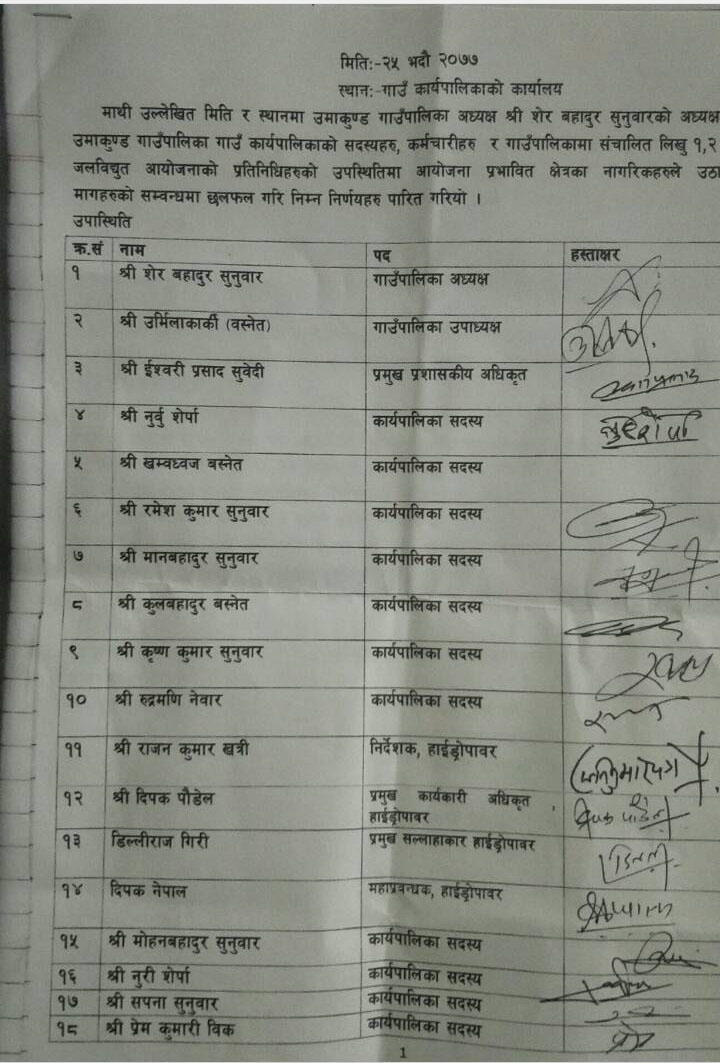 मिति:-२५ भदौ २०७७
स्थान:-गाउँ कार्यपालिकाको कार्यालय
माथी उल्लेखित मिति र स्थानमा उमाकुण्ड गाउँपालिका अध्यक्ष श्री शेर बहादुर सुनुवारको अध्यक्ष
उमाकुण्ड गाउँपालिका गाउँ कार्यपालिकाको सदस्यहरु, कर्मचारीहरु र गाउँपालिकामा संचालित लिखु १,२
जलविद्युत आयोजनाको प्रतिनिधिहरुको उपस्थितिमा आयोजना प्रभावित क्षेत्रका नागरिकहरुले उठा
मागहरुको सम्वन्धमा छलफल गरि निम्न निर्णयहरु पारित गरियो ।
उपास्थिति
क्र.सं नाम पद हस्ताक्षर
१ श्री शेर बहादुर सुनुवार गाउँपालिका अध्यक्ष
२ श्री उर्मिलाकार्की (वस्नेत) गाउँपालिका उपाध्यक्ष
३ श्री ईश्वरी प्रसाद सुवेदी प्रमुख प्रशासकीय अधिकृत
४ श्री नुर्वु शेर्पा कार्यपालिका सदस्य
५ श्री खम्वध्वज बस्नेत कार्यपालिका सदस्य
६ श्री रमेश कुमार सुनुवार कार्यपालिका सदस्य
७ श्री मानबहादुर सुनुवार कार्यपालिका सदस्य
८ श्री कुलबहादुर बस्नेत कार्यपालिका सदस्य
९ श्री कृष्ण कुमार सुनुवार कार्यपालिका सदस्य
१० श्री रुद्रमणि नेवार कार्यपालिका सदस्य
११ श्री राजन कुमार खत्री निर्देशक, हाईड्रोपावर
१२ श्री दिपक पौडेल प्रमुख कार्यकारी अधिकृत ,
हाईड्रोपावर
१३ डिल्लीराज गिरी प्रमुख सल्लाहाकार हाईड्रोपावर
१४ दिपक नेपाल महाप्रवन्धक, हाईड्रोपावर
१५ श्री मोहनबहादुर सुनुवार कार्यपालिका सदस्य
१६ श्री नुरी शेर्पा कार्यपालिका सदस्य
१७ श्री सपना सुनुवार कार्यपालिका सदस्य
१८ श्री प्रेम कुमारी विक कार्यपालिका सदस्य
1